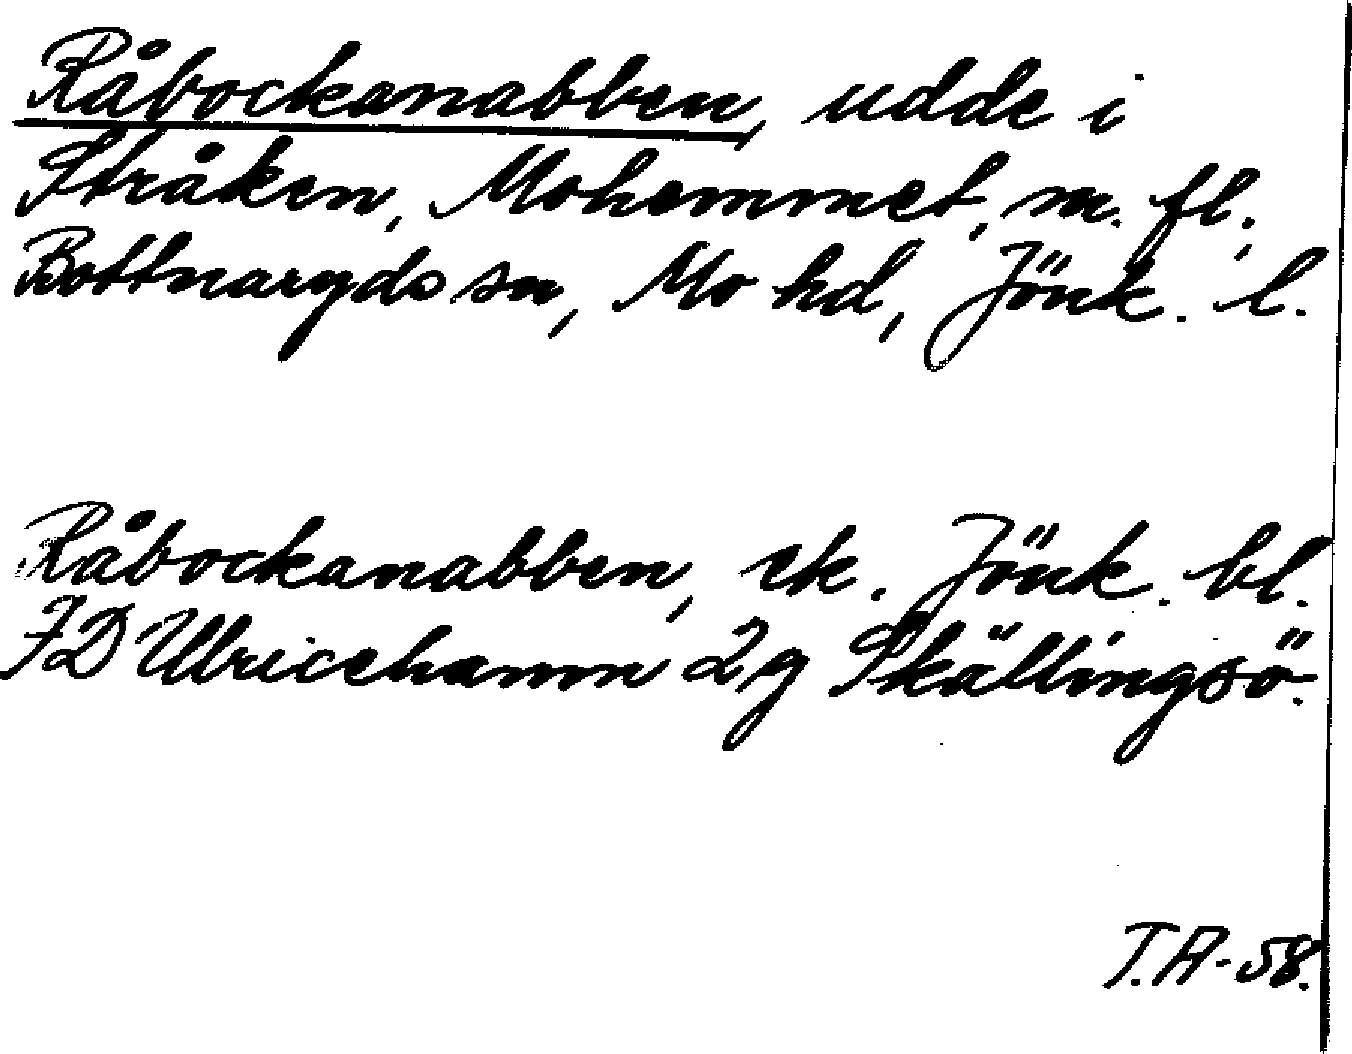 Råbockanabben, udde i
Stråken, Mohemmet, m. fl.,
Bottnaryds sn, Mo hd, Jönk. l.
Råbockanabben, ek. Jönk. bl.
7D Ulricehamn 2g Skällingsö.
T.A-58.